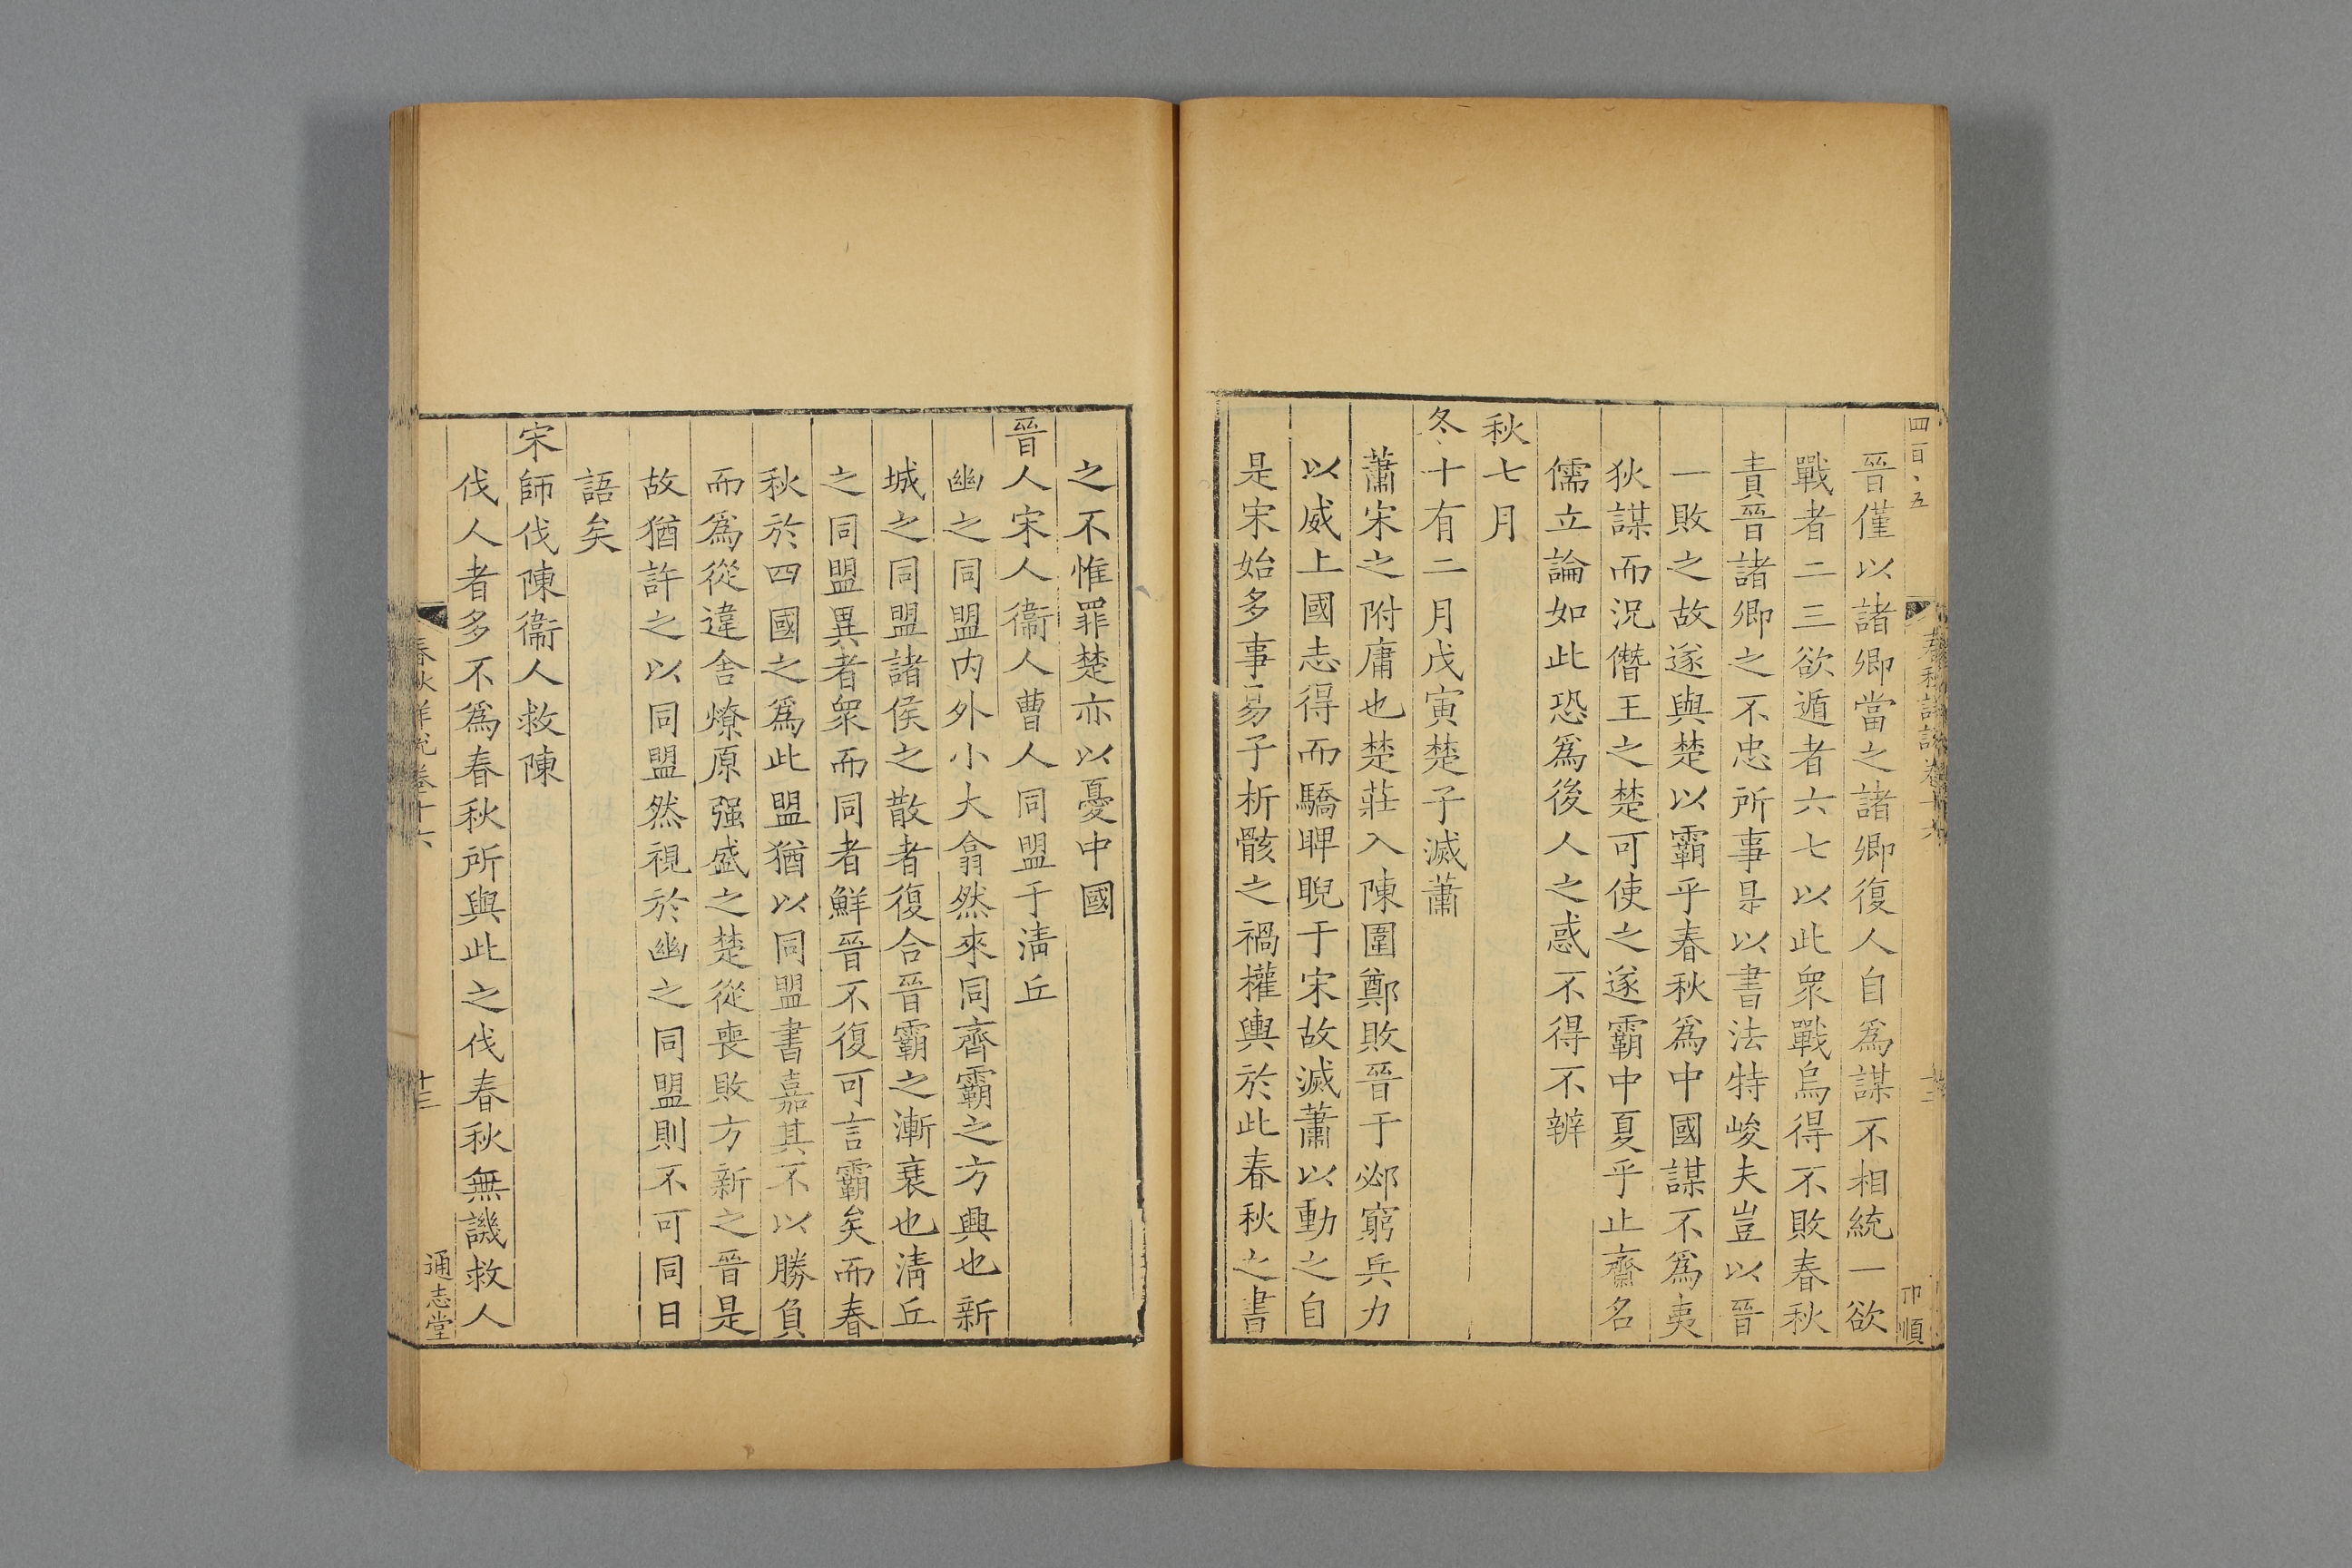 四百、五
春秋詳說卷十六
順
晉僅以諸卿當之諸卿復人自爲謀不相統一欲
戰者二三欲遁者六七以此衆戰烏得不敗春秋
責晉諸卿之不忠所事是以書法特峻夫豈以晉
一敗之故遂與楚以霸乎春秋爲中國謀不爲夷
狄謀而況僭王之楚可使之遂霸中夏乎止齋名
儒立論如此恐爲後人之惑不得不辨
秋七月
冬十有二月戊寅楚子滅蕭
蕭宋之附庸也楚莊入陳圍鄭敗晉于邲窮兵力
以威上國志得而驕睥睨于宋故滅蕭以動之自
是宋始多事易子析骸之禍權輿於此春秋之書
之不惟罪楚亦以憂中國
晉人宋人衞人曹人同盟于淸丘
幽之同盟內外小大翕然來同齊霸之方興也新
城之同盟諸侯之散者復合晉霸之漸衰也淸丘
之同盟異者衆而同者鮮晉不復可言霸矣而春
秋於四國之爲此盟猶以同盟書嘉其不以勝負
而爲從違舍燎原强盛之楚從喪敗方新之晉是
故猶許之以同盟然視於幽之同盟則不可同日
語矣
宋師伐陳衞人救陳
伐人者多不爲春秋所與此之伐春秋無譏救人
春秋詳說卷十六
十三
通志堂